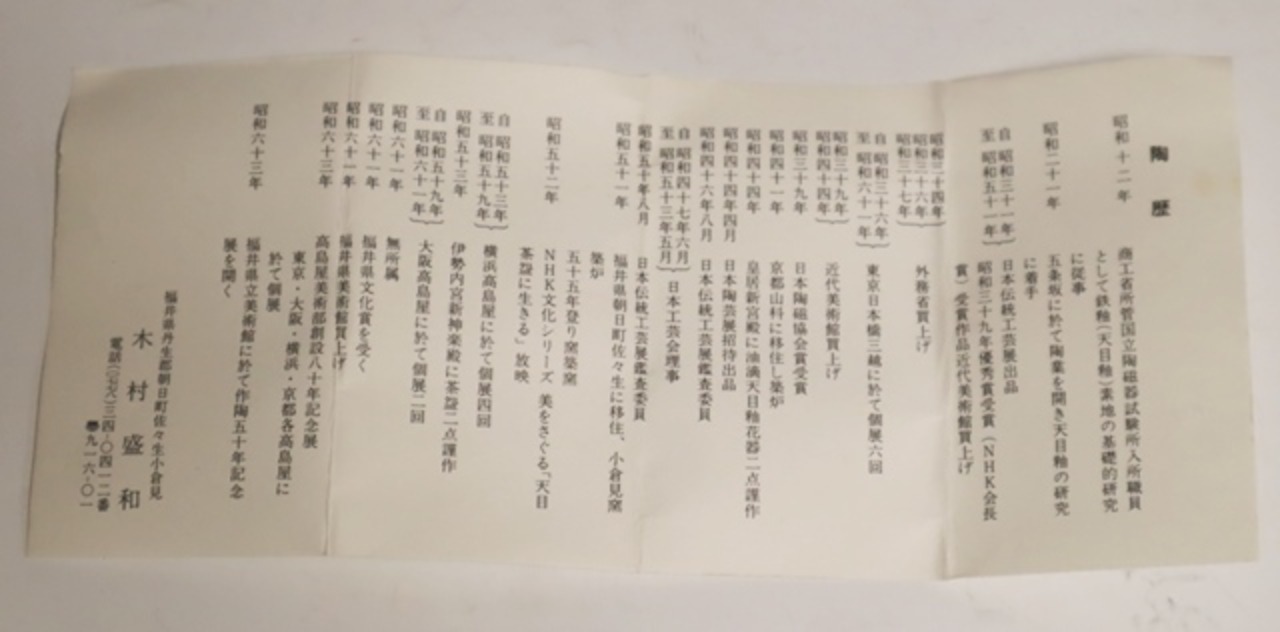 陶歴
昭和 十二年 商工省所管国立陶磁器試験所入所職員
として鉄釉(天目釉)素地の基礎的研究
に従事
昭和二十一年 五条坂に於て陶業を開き天目釉の研究
に着手
自 昭和三十一年
至 昭和五十一年 日本伝統工芸展出品
昭和三十九年優秀賞受賞(NHK会長
賞)受賞作品近代美術館買上げ
昭和三十四年
昭和三十六年
昭和三十七年 外務省買上げ
自 昭和三十六年
至 昭和六十一年 東京日本橋三越に於て個展六回
昭和三十九年
昭和四十四年 近代美術館買上げ
昭和三十九年 日本陶磁協会賞受賞
昭和四十一年 京都山科に移住し築炉
昭和四十四年 皇居新宮殿に油滴天目釉花器二点謹作
昭和四十四年四月 日本陶芸展招待出品
昭和四十六年八月 日本伝統工芸展鑑査委員
自 昭和四十七年六月
至 昭和五十三年五月 日本工芸会理事
昭和五十年八月 日本伝統工芸展鑑査委員
昭和五十一年 福井県朝日町佐々生に移住、小倉見窯
築炉
五十五年登り窯築窯
昭和五十二年 NHK文化シリーズ 美をさぐる「天目
茶盌に生きる」放映
自 昭和五十三年
至 昭和五十九年 横浜高島屋に於て個展四回
昭和五十三年 伊勢内宮新神楽殿に茶盌二点謹作
自 昭和五十九年
至 昭和六十一年 大阪高島屋に於て個展二回
昭和六十一年 無所属
昭和六十一年 福井県文化賞を受く
昭和六十一年 福井県美術館買上げ
昭和六十三年 高島屋美術部創設八十年記念展
東京・大阪・横浜・京都各高島屋に
於て個展
昭和六十三年 福井県立美術館に於て作陶五十年記念
展を開く
福井県丹生郡朝日町佐々生小倉見
木村盛和
電話(〇七七八)三四-〇四一二番
九一六-〇一